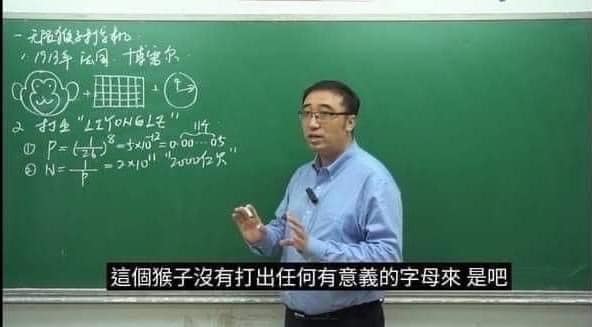 一 无限猴子打字机.
1. 1913年 法国. 博雷尔.
2. 打出 "LIYONGLE"
① P=(1/26)^8=5×10^-12=0.00…05
11个
② N=1/P=2×10^11 "2000亿次"
這個猴子沒有打出任何有意義的字母來 是吧